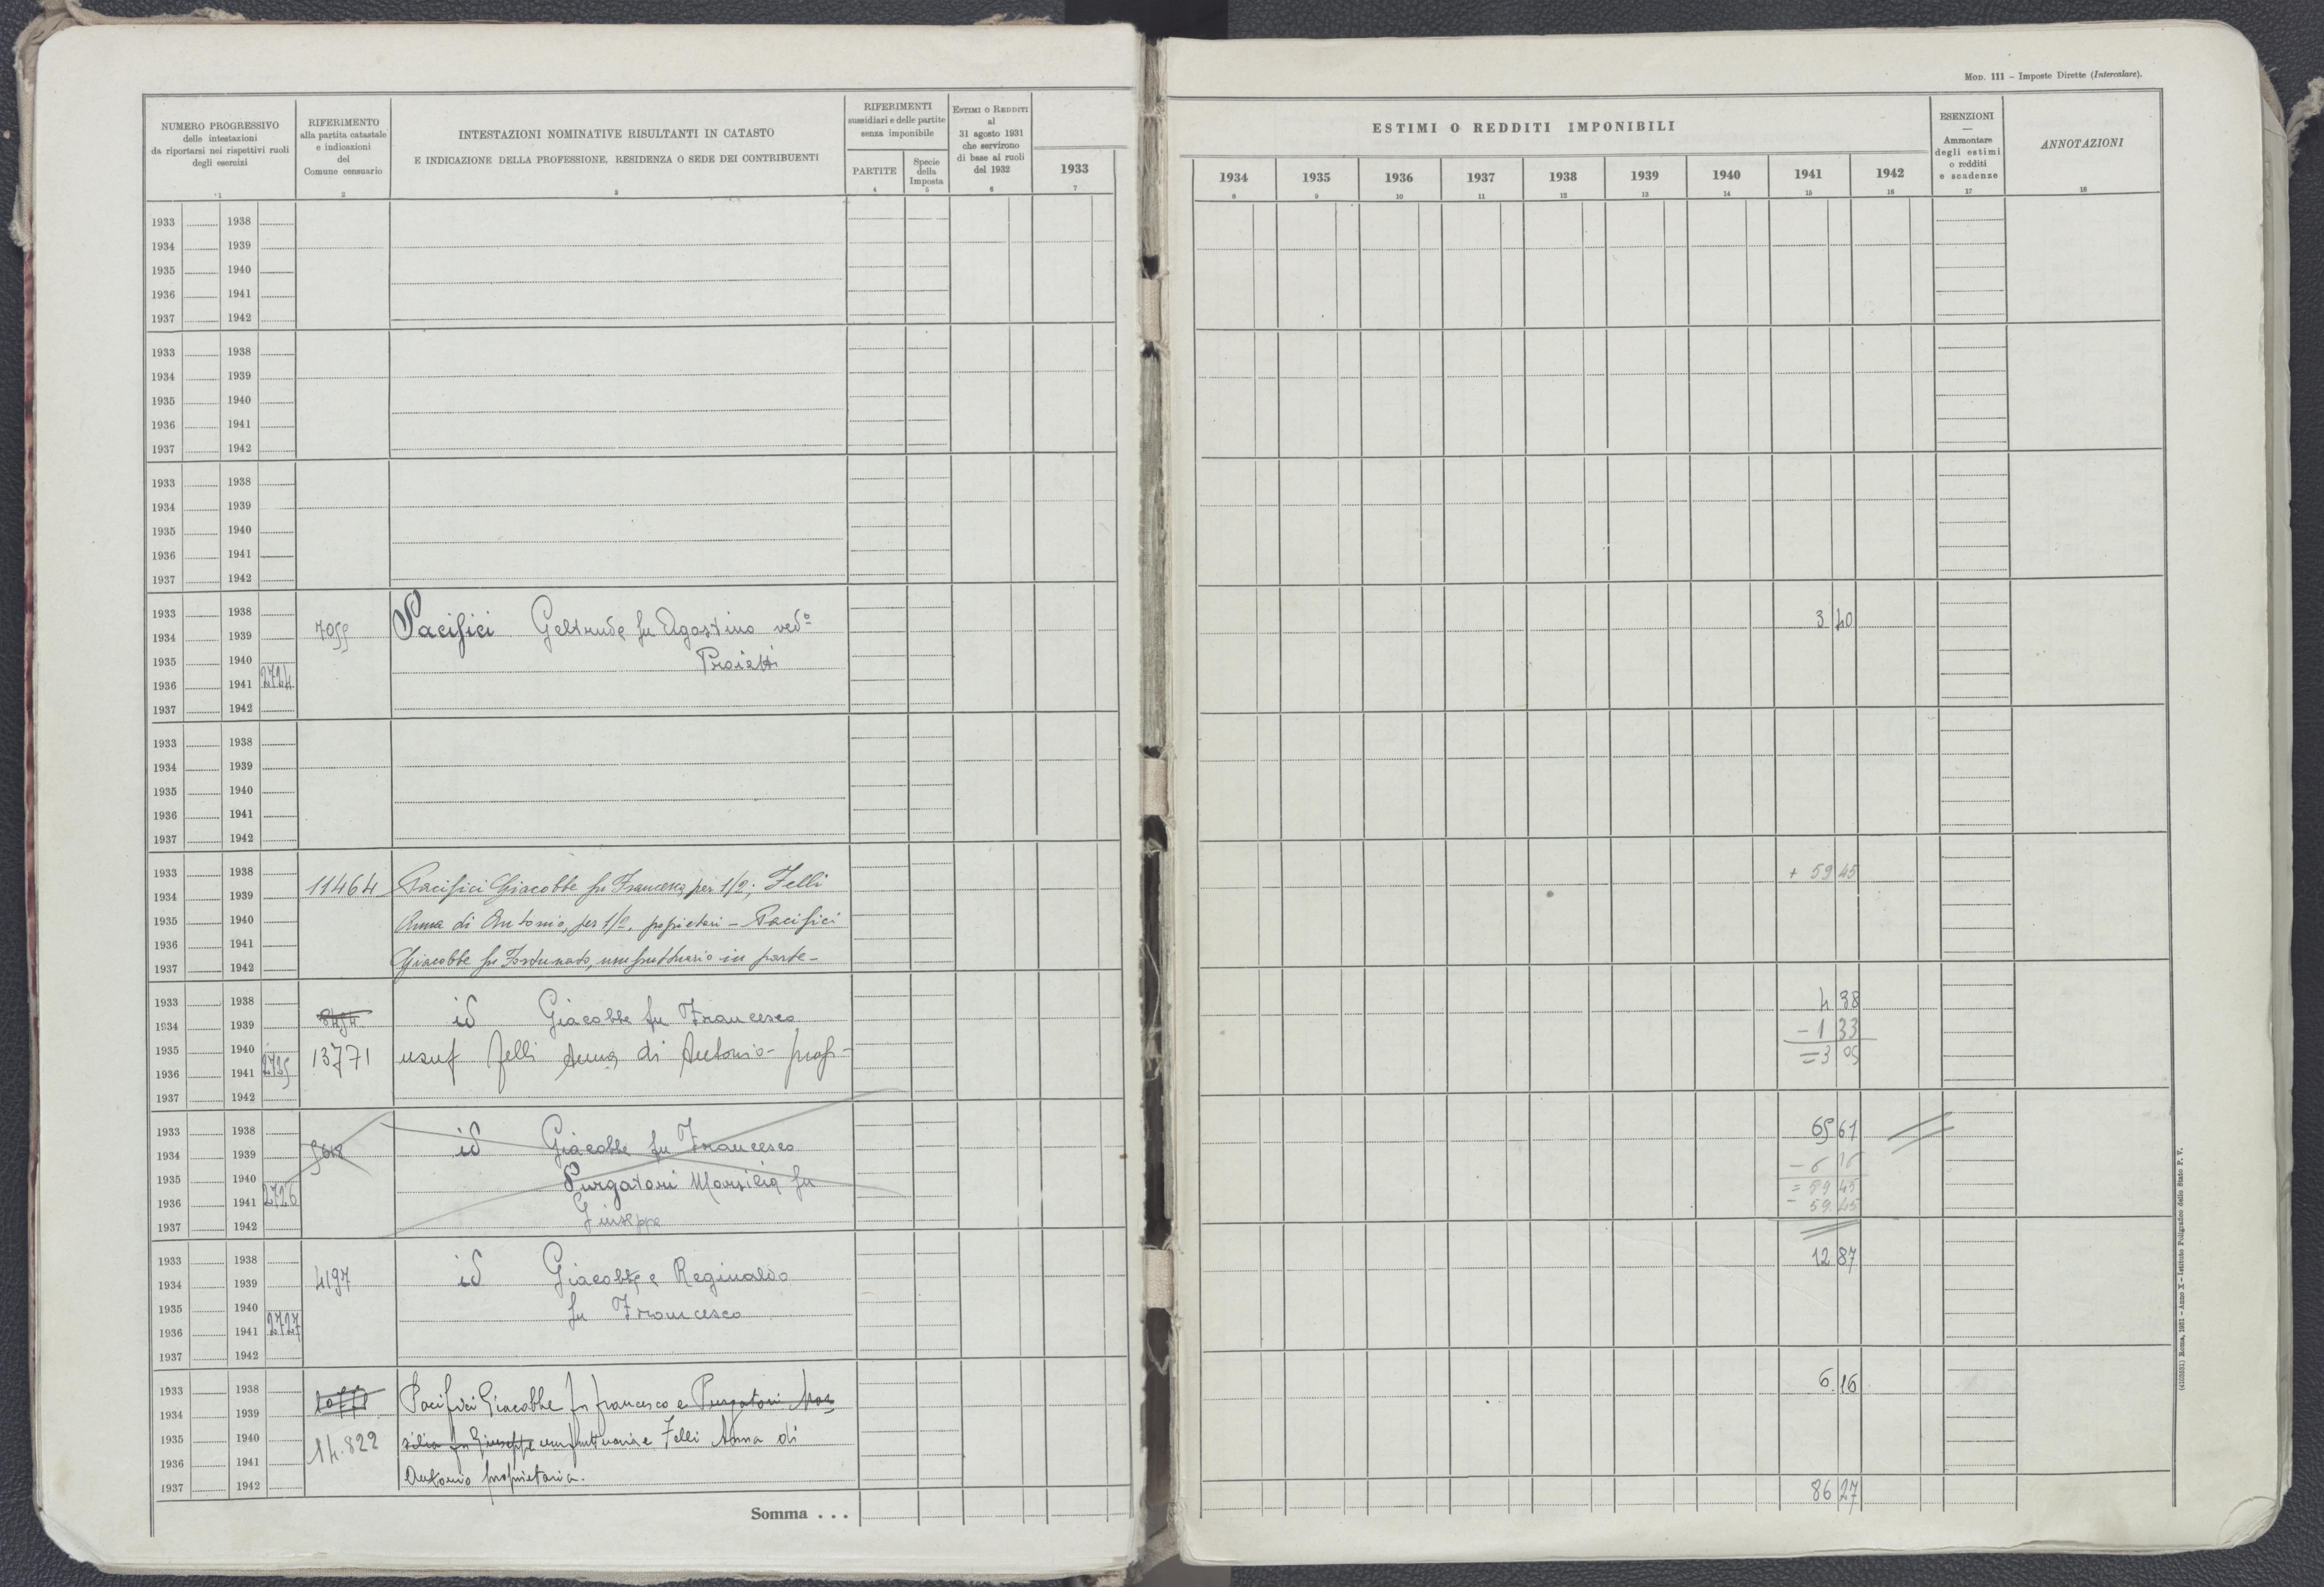 MOD. 111 – Imposte Dirette (Intercalare).
NUMERO PROGRESSIVO
delle intestazioni
da riportarsi nei rispettivi ruoli
degli esercizi
1
RIFERIMENTO
alla partita catastale
e indicazioni
del
Comune censuario
2
INTESTAZIONI NOMINATIVE RISULTANTI IN CATASTO
E INDICAZIONE DELLA PROFESSIONE, RESIDENZA O SEDE DEI CONTRIBUENTI
3
RIFERIMENTI
sussidiari e delle partite
senza imponibile
PARTITE
4
Specie
della
Imposta
5
ESTIMI O REDDITI
al
31 agosto 1931
che servirono
di base ai ruoli
del 1932
6
1933
7
ESTIMI O REDDITI IMPONIBILI
1934 1935 1936 1937 1938 1939 1940 1941 1942
8 9 10 11 12 13 14 15 16
ESENZIONI
—
Ammontare
degli estimi
o redditi
e scadenze
17
ANNOTAZIONI
18
1933 1938
1934 1939
1935 1940
1936 1941
1937 1942
1933 1938
1934 1939
1935 1940
1936 1941
1937 1942
1933 1938
1934 1939
1935 1940
1936 1941
1937 1942
1933 1938 3 40
1934 1939 Pacifici Geltrude fu Agostino ved.
1935 1940 Proietti
1936 1941 2724
1937 1942
1933 1938
1934 1939
1935 1940
1936 1941
1937 1942
1933 1938 + 59 45
1934 1939 11464 Pacifici Giacobbe fu Francesco, per 1/2; Felli
1935 1940 Anna di Antonio, per 1/2, proprietari – Pacifici
1936 1941
1937 1942 Giacobbe fu Fortunato, usufruttuario in parte –
1933 1938 4 38
1934 1939 id Giacobbe fu Francesco – 1 33
1935 1940 13771 usuf Felli Anna di Antonio – prop – = 3 05
1936 1941 2725
1937 1942
1933 1938 65 61
1934 1939 5618 id Giacobbe fu Francesco – 6 16
1935 1940 Purgatori Marsilia fu = 59 45
1936 1941 2726 – 59 45
1937 1942 Giuseppe
1933 1938 12 87
1934 1939 4197 id Giacobbe e Reginaldo
1935 1940 fu Francesco
1936 1941 2727
1937 1942
1933 1938 6 16
1934 1939 Pacifici Giacobbe fu Francesco e Purgatori Mar
1935 1940 14.822 silia fu Giuseppe usufruttuari e Felli Anna di
1936 1941
1937 1942 Antonio proprietaria.
Somma . . . 86 27
(4103531) Roma, 1931 – Anno X – Istituto Poligrafico dello Stato P. V.